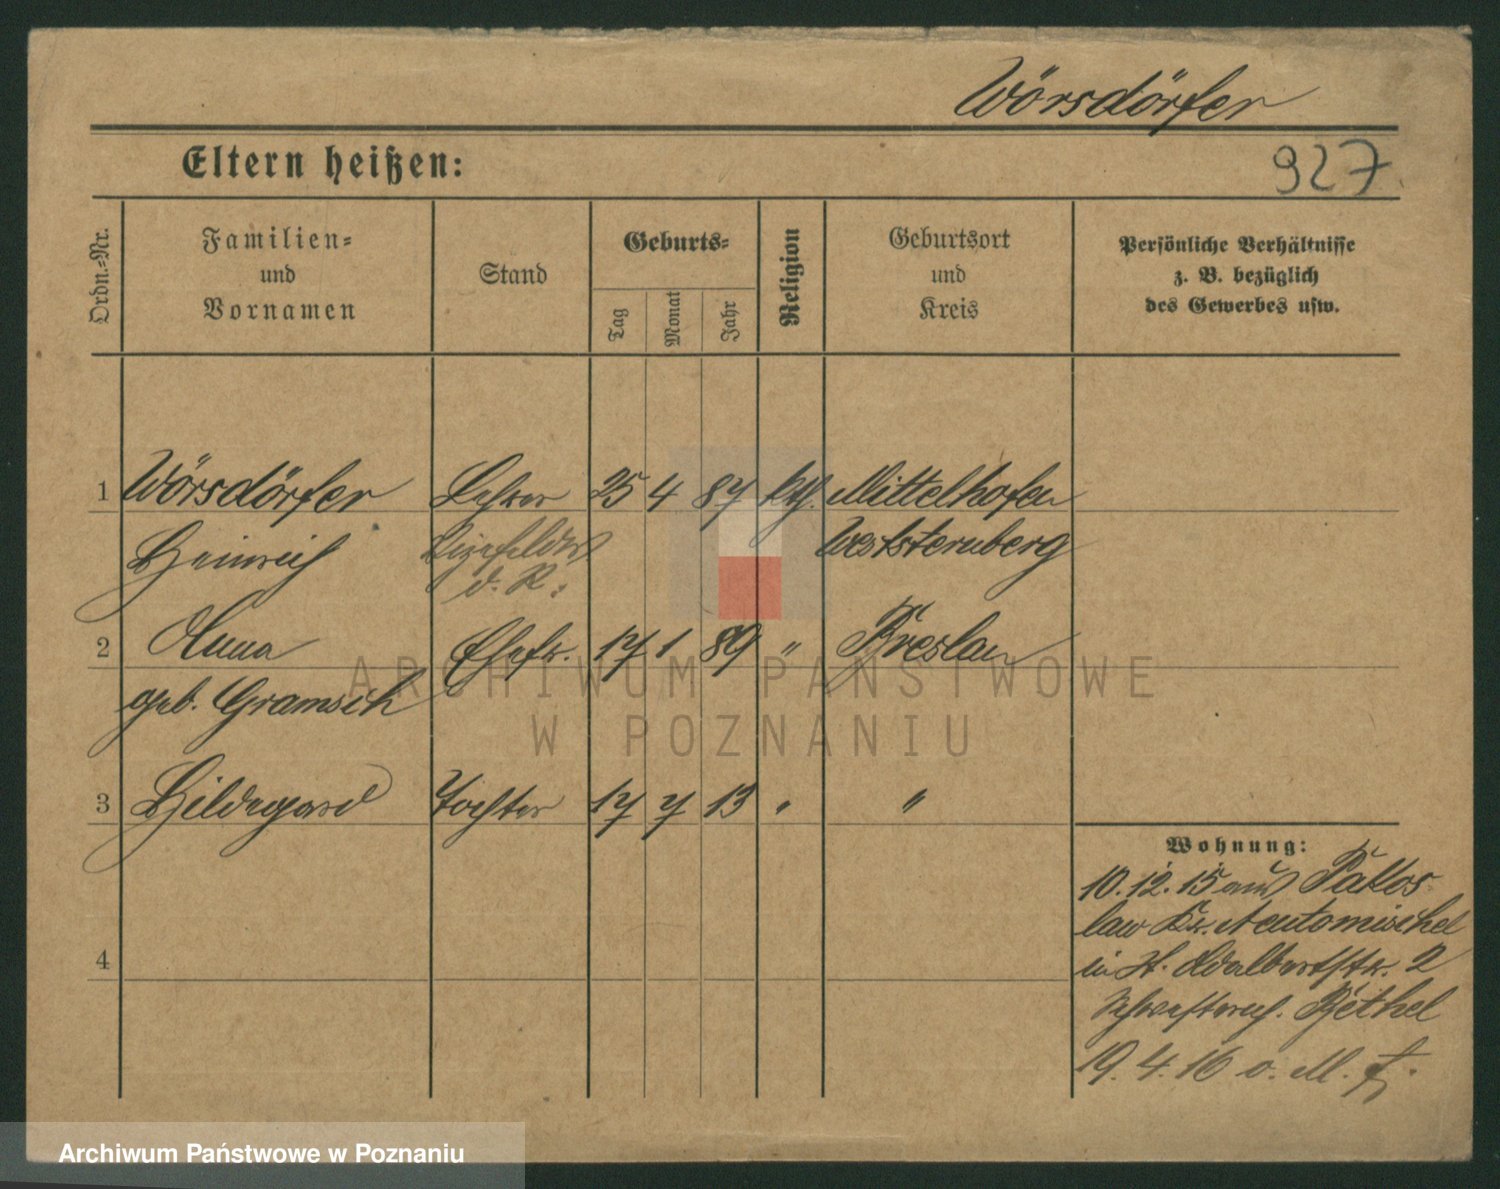 Wörsdörfer
Eltern heißen:
927.
Ordn.-Nr.
Familien-
und
Vornamen
Stand
Geburts-
Tag
Monat
Jahr
Religion
Geburtsort
und
Kreis
Persönliche Verhältnisse
z. B. bezüglich
des Gewerbes usw.
1 Wörsdörfer Lehrer 25 4 87 kth. Mittelhofen
Heinrich Vizefeldw. Weststernberg
d. R.
2 Anna Ehefr. 17 1 89 " Breslau
geb. Gramsch
3 Hildegard Tochter 17 7 13 " "
4
Wohnung:
10.12.15 aus Patlos-
law Kr. Neutomischel
in St. Adalbertstr. 2
Schwesternh. Bethel
19.4.16 o. M.
ARCHIWUM PAŃSTWOWE
W POZNANIU
Archiwum Państwowe w Poznaniu